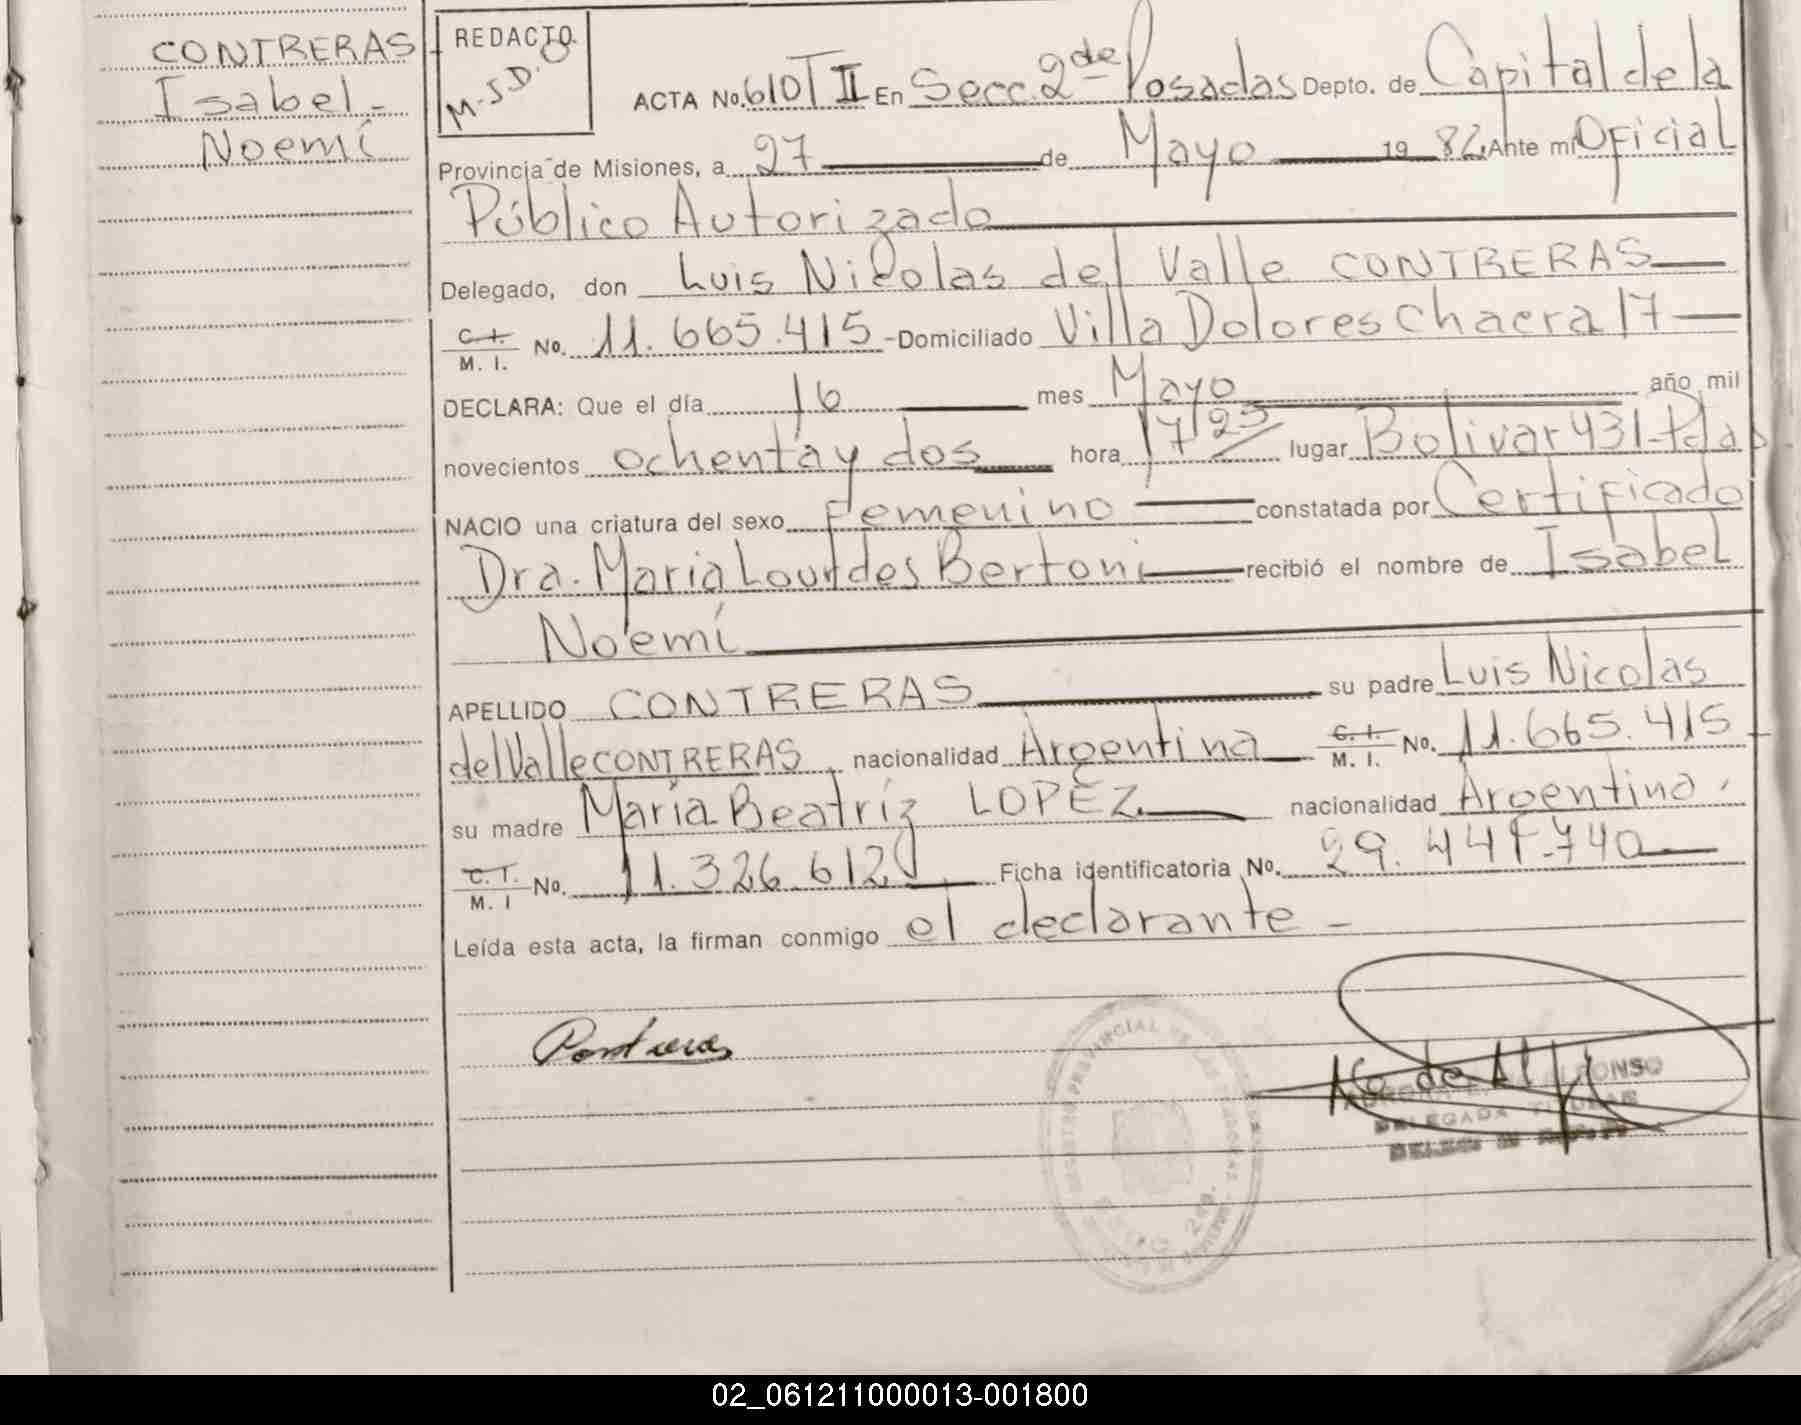 CONTRERAS
Isabel-
Noemí
REDACTO.
M-SD.O
ACTA No. 610 T II En Secc. 2de Posadas Depto. de Capital de la
Provincia de Misiones, a 27 de Mayo 19 82. Ante mí Oficial
Público Autorizado
Delegado, don Luis Nicolas del Valle CONTRERAS
C. I. M. I. No. 11.665.415 - Domiciliado Villa Dolores Chacra 17
DECLARA: Que el día 16 mes Mayo año mil
novecientos ochenta y dos hora 17/25 lugar Bolivar 431-Pdas
NACIO una criatura del sexo Femenino constatada por Certificado
Dra. Maria Lourdes Bertoni recibió el nombre de Isabel
Noemí
APELLIDO CONTRERAS su padre Luis Nicolas
del Valle CONTRERAS nacionalidad Argentina C. I. M. I. No. 11.665.415
su madre María Beatríz LOPEZ nacionalidad Argentina.
C. I. M. I No. 11.326.612 Ficha identificatoria No. 29.447-740
Leída esta acta, la firman conmigo el declarante -
REGISTRO PROVINCIAL DE LAS PERSONAS
ALFONSO
DELEGADA TITULAR
02_061211000013-001800